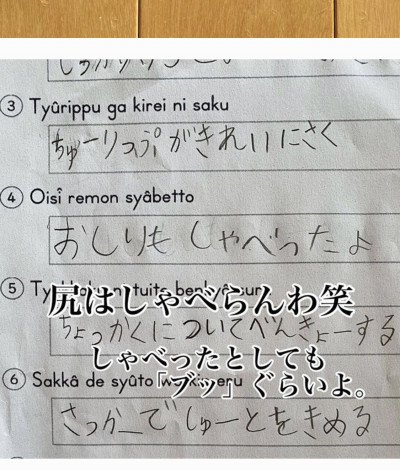 ③ Tyûrippu ga kirei ni saku
ちゅーりっぷがきれいにさく
④ Oisî remon syâbetto
おしりも しゃべったよ
⑤
尻はしゃべらんわ笑
ちょっかくについてべんきょーする
しゃべったとしても
「ブッ」ぐらいよ。
⑥ Sakkâ de syûto
さっかーで しゅーとをきめる